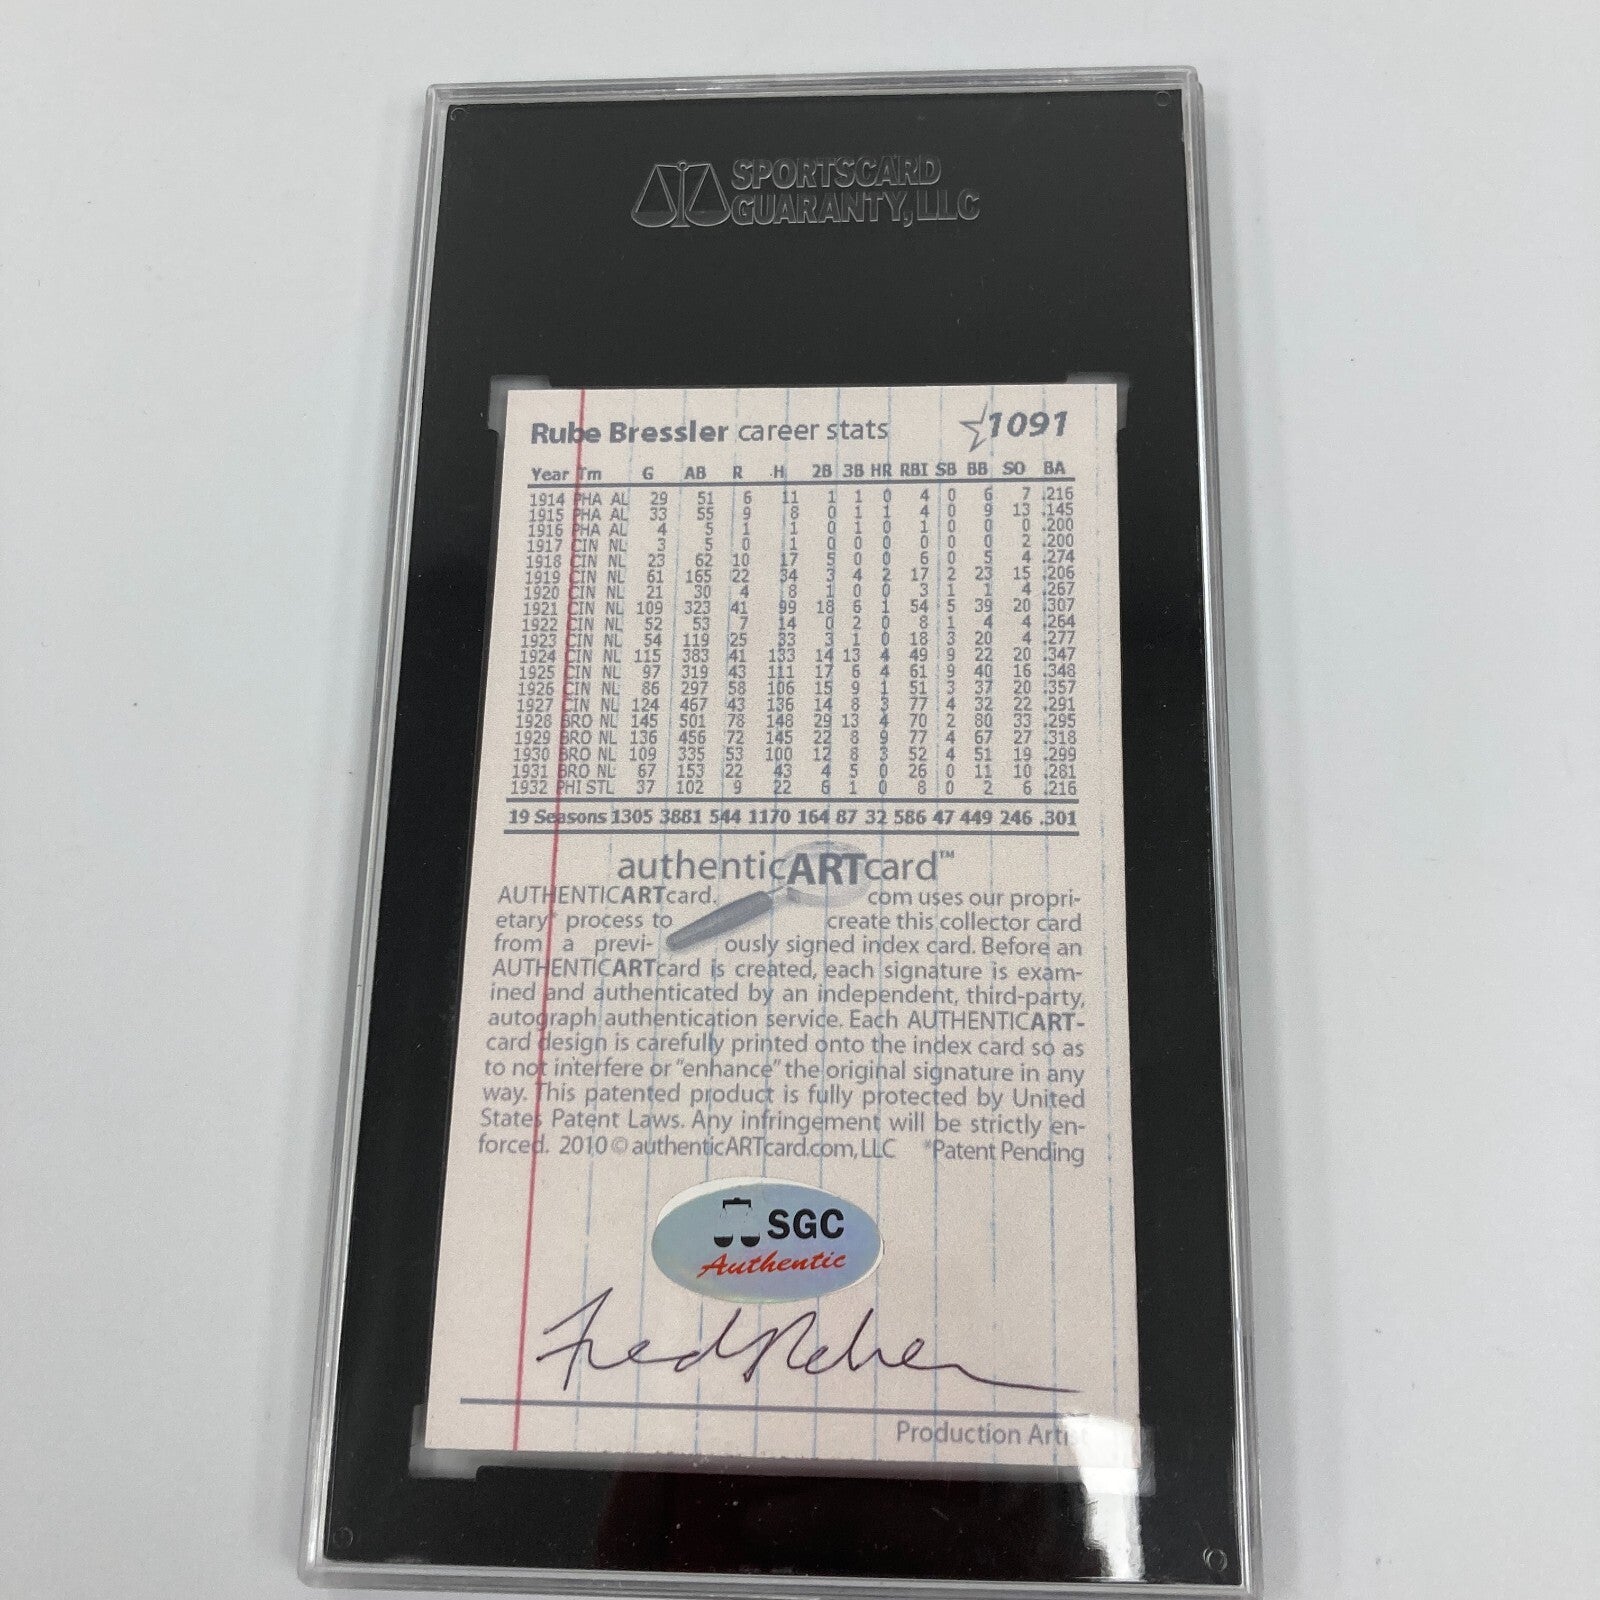 SPORTSCARD
GUARANTY, LLC
Rube Bressler career stats 1091
Year Tm G AB R H 2B 3B HR RBI SB BB SO BA
1914 PHA AL 29 51 6 11 1 1 0 4 0 6 7 .216
1915 PHA AL 33 55 9 8 0 1 1 4 0 9 13 .145
1916 PHA AL 4 5 1 1 0 1 0 1 0 0 0 .200
1917 CIN NL 3 5 0 1 0 0 0 0 0 0 2 .200
1918 CIN NL 23 62 10 17 5 0 0 6 0 5 4 .274
1919 CIN NL 61 165 22 34 3 4 2 17 2 23 15 .206
1920 CIN NL 21 30 4 8 1 0 0 3 1 1 4 .267
1921 CIN NL 109 323 41 99 18 6 1 54 5 39 20 .307
1922 CIN NL 52 53 7 14 0 2 0 8 1 4 4 .264
1923 CIN NL 54 119 25 33 3 1 0 18 3 20 4 .277
1924 CIN NL 115 383 41 133 14 13 4 49 9 22 20 .347
1925 CIN NL 97 319 43 111 17 6 4 61 9 40 16 .348
1926 CIN NL 86 297 58 106 15 9 1 51 3 37 20 .357
1927 CIN NL 124 467 43 136 14 8 3 77 4 32 22 .291
1928 BRO NL 145 501 78 148 29 13 4 70 2 80 33 .295
1929 BRO NL 136 456 72 145 22 8 9 77 4 67 27 .318
1930 BRO NL 109 335 53 100 12 8 3 52 4 51 19 .299
1931 BRO NL 67 153 22 43 4 5 0 26 0 11 10 .281
1932 PHI STL 37 102 9 22 6 1 0 8 0 2 6 .216
19 Seasons 1305 3881 544 1170 164 87 32 586 47 449 246 .301
authenticARTcard™
AUTHENTICARTcard. com uses our propri-
etary* process to create this collector card
from a previ- ously signed index card. Before an
AUTHENTICARTcard is created, each signature is exam-
ined and authenticated by an independent, third-party,
autograph authentication service. Each AUTHENTICART-
card design is carefully printed onto the index card so as
to not interfere or "enhance" the original signature in any
way. This patented product is fully protected by United
States Patent Laws. Any infringement will be strictly en-
forced. 2010 © authenticARTcard.com, LLC *Patent Pending
SGC
Authentic
Fred
Production Artist